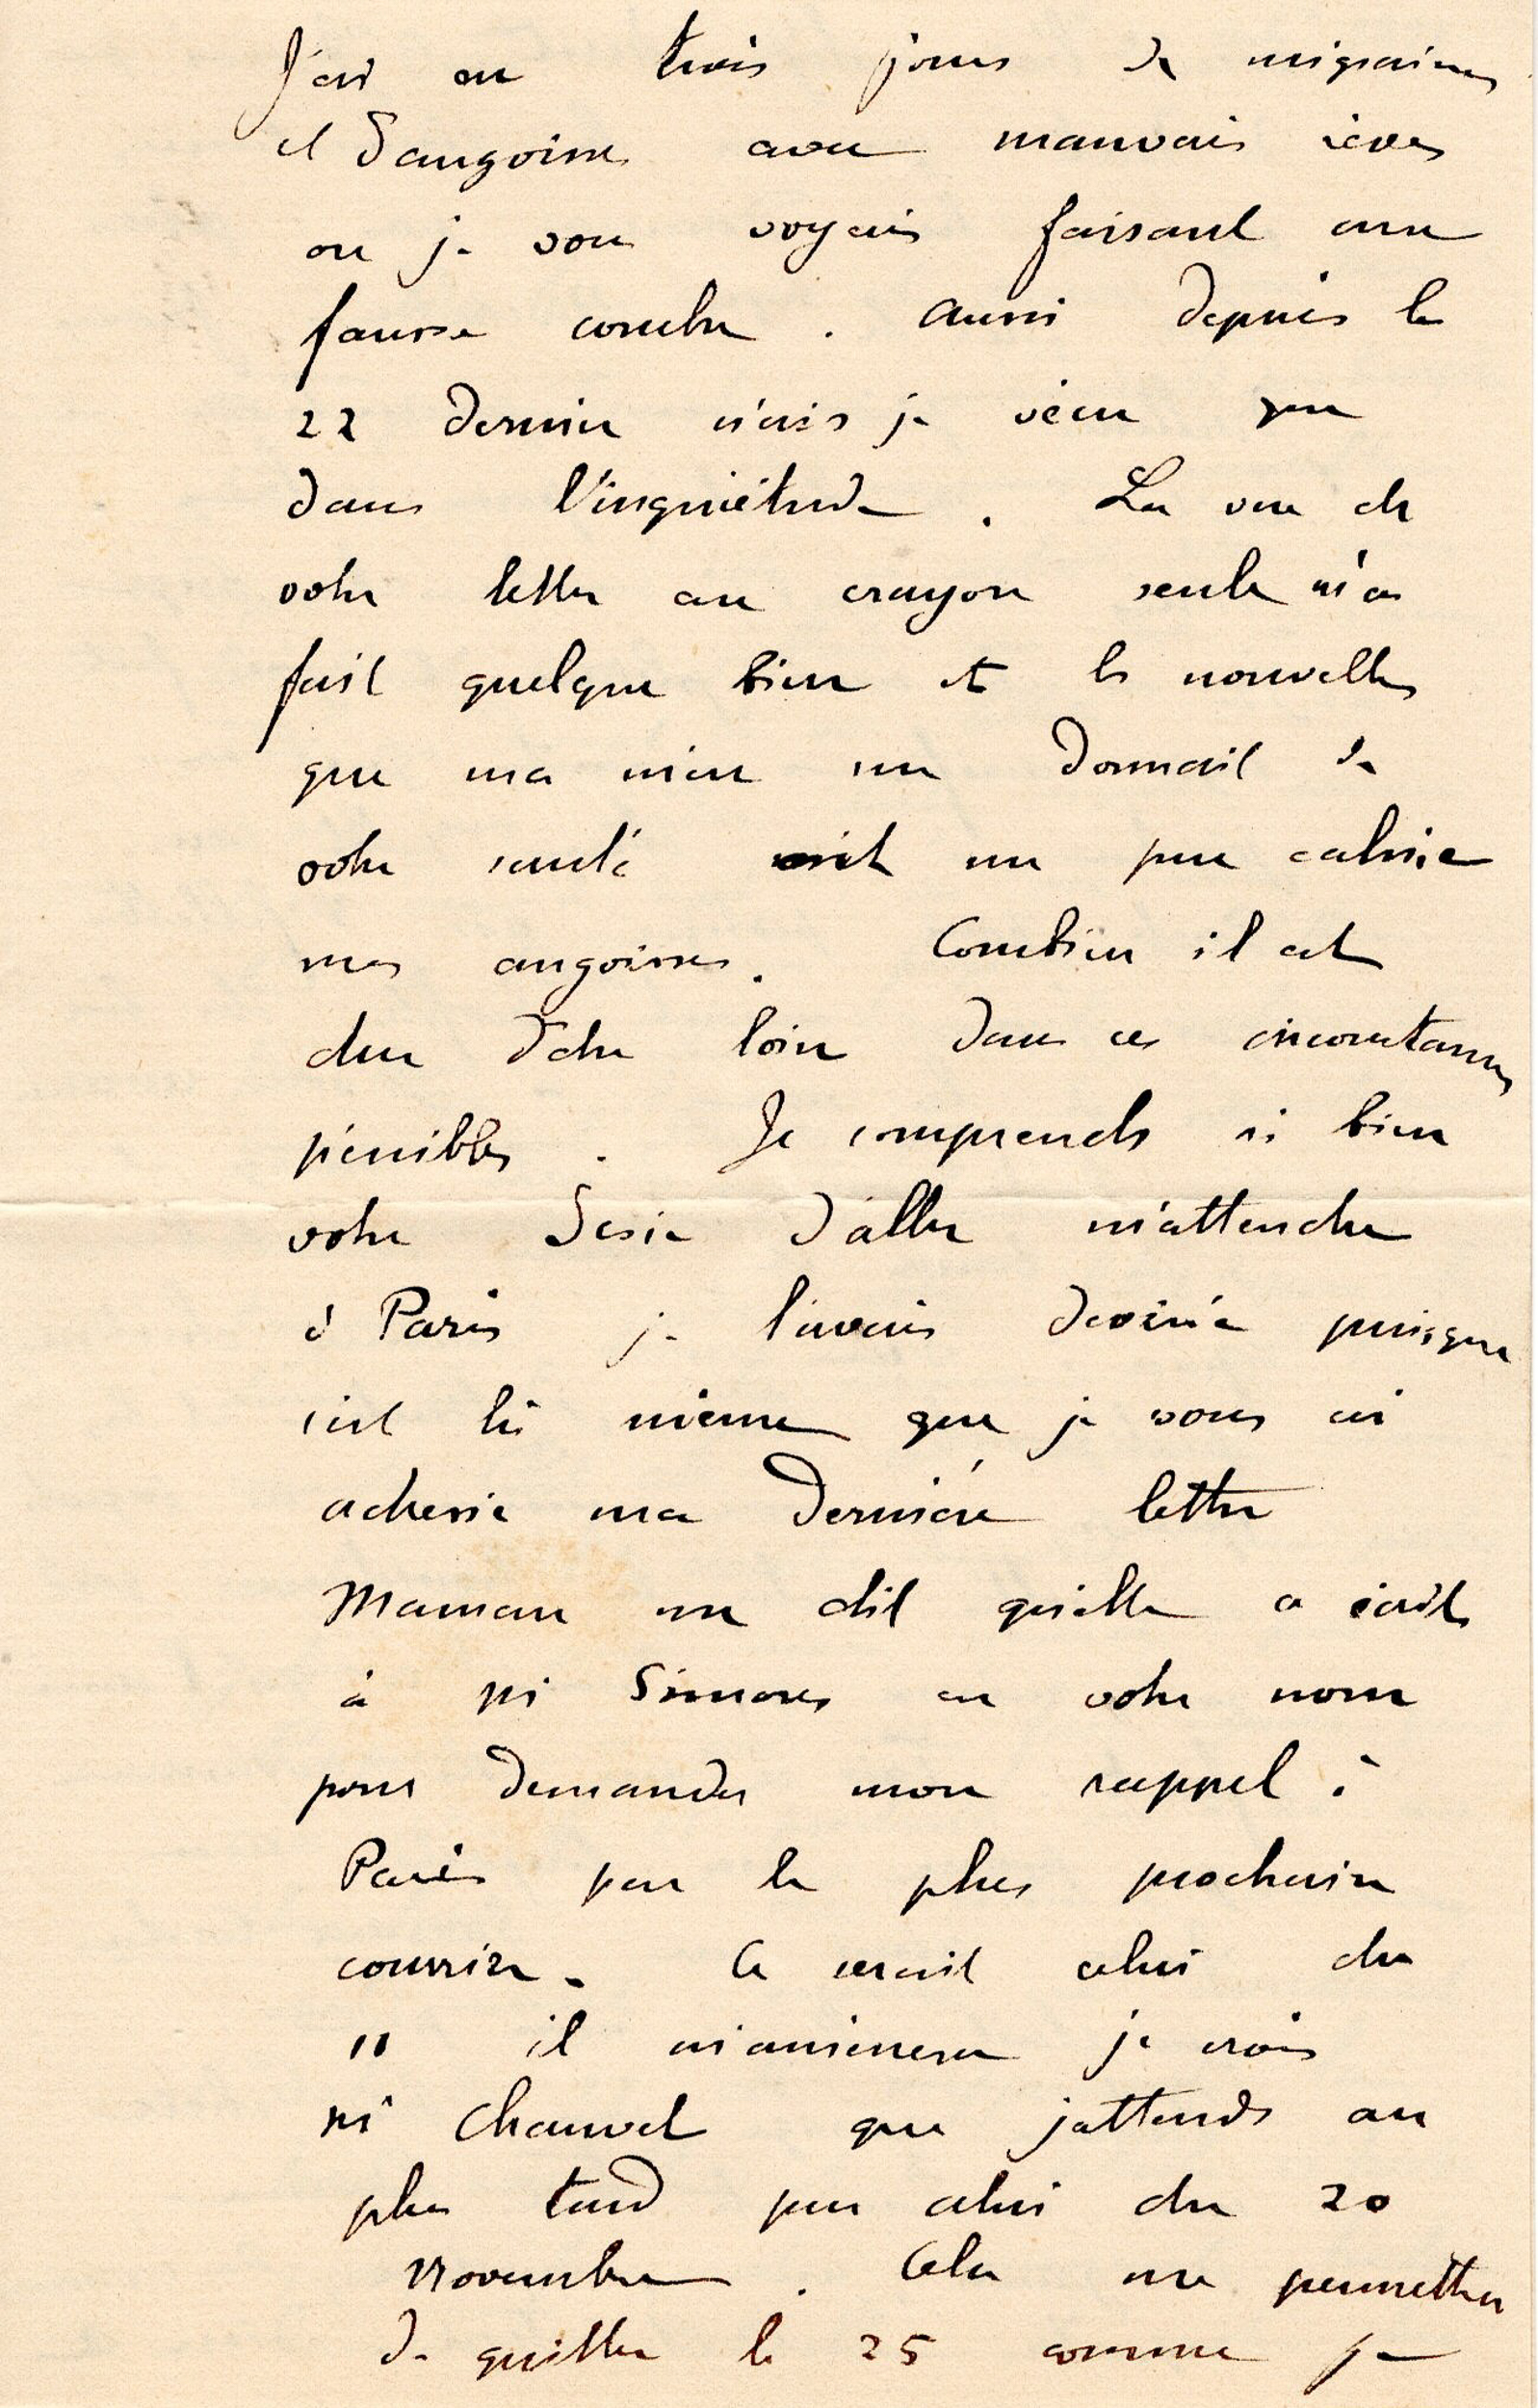 J'ai eu trois jours de migraines
et d'angoisses avec mauvais rêves
ou je vous voyais faisant une
fausse couche. Aussi depuis le
22 dernier n'ais je vécu que
dans l'inquiétude. La vue de
votre lettre au crayon seule m'a
fait quelque bien et les nouvelles
que ma mère me donnait de
votre santé ont un peu calmé
mes angoisses. Combien il est
dur d'être loin dans ces circonstances
pénibles. Je comprends si bien
votre désir d'aller m'attendre
à Paris je l'avais deviné puisque
c'est là même que je vous ai
adressé ma dernière lettre
Maman me dit qu'elle a écrit
à Mr Simones en votre nom
pour demander mon rappel à
Paris par le plus prochain
courrier. Ce serait celui du
11 il m'amènera je crois
Mr Chauvet que j'attends au
plus tard par celui du 20
novembre. Cela me permettra
de quitter le 25 comme je